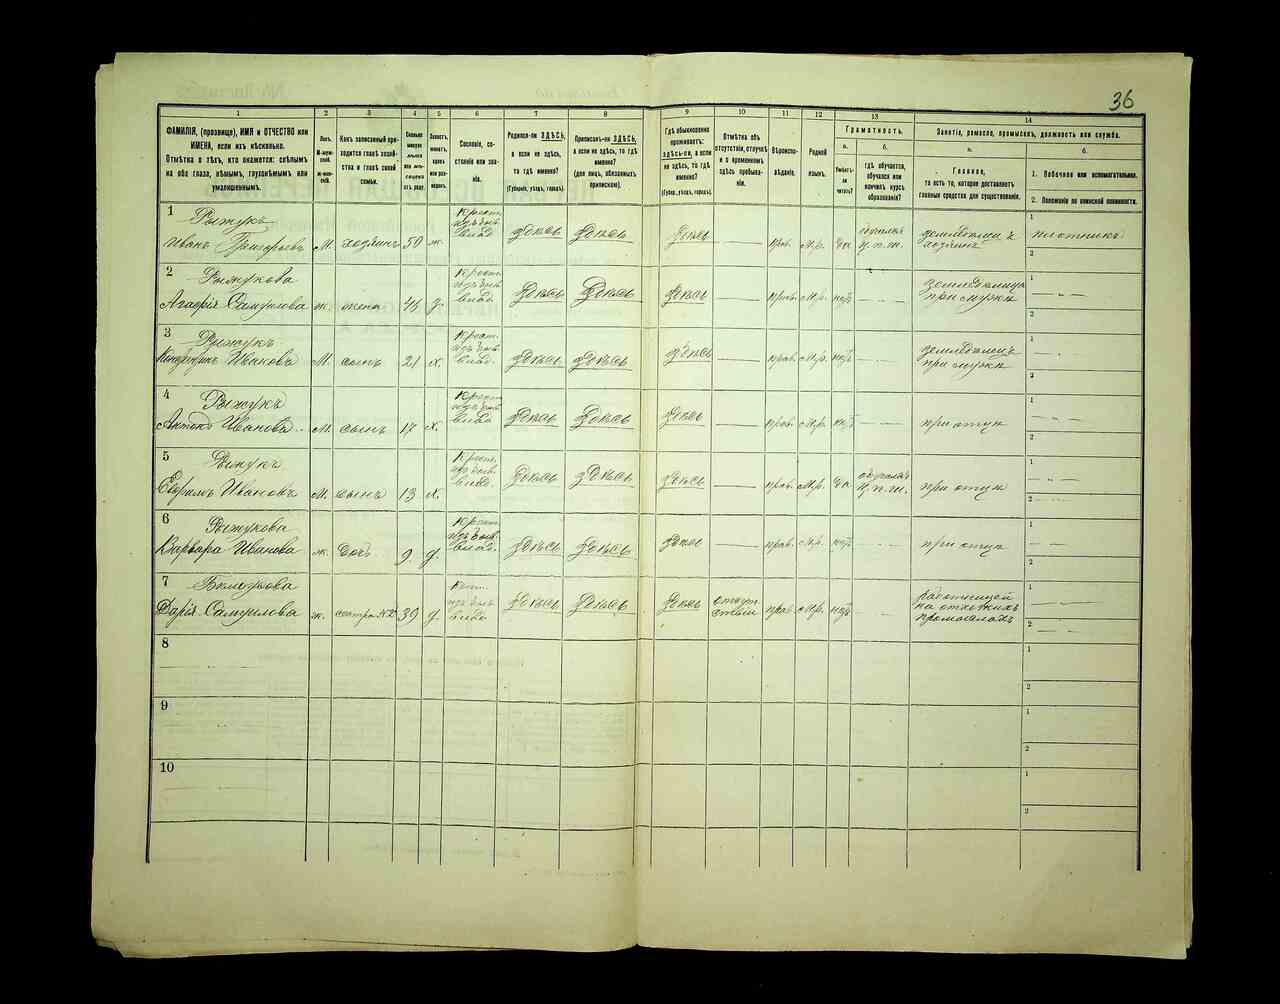 36
1
2
3
4
5
6
7
8
9
10
11
12
13
14
ФАМИЛІЯ, (прозвище), ИМЯ и ОТЧЕСТВО или ИМЕНА, если ихъ нѣсколько.
Отмѣтка о тѣхъ, кто окажется: слѣпымъ на оба глаза, нѣмымъ, глухонѣмымъ или умалишеннымъ.
Полъ.
М-муж-
ской.
Ж-жен-
скій.
Какъ записанный при-
ходится главѣ хозяй-
ства и главѣ своей
семьи.
Сословіе, со-
стояніе или зва-
ніе.
Родился-ли ЗДѢСЬ,
а если не здѣсь,
то гдѣ именно?
(Губернія, уѣздъ, городъ).
Приписанъ-ли ЗДѢСЬ,
а если не здѣсь, то гдѣ
именно?
(для лицъ, обязанныхъ
припискою).
Гдѣ обыкновенно
проживаетъ:
здѣсь-ли, а если
не здѣсь, то гдѣ
именно?
(Губер., уѣздъ, городъ).
Отмѣтка объ
отсутствіи, отлучкѣ
и о временномъ
здѣсь пребыва-
ніи.
Вѣроиспо-
вѣданіе.
Родной
языкъ.
Грамотность.
а.
Умѣетъ-
ли
читать?
б.
гдѣ обучается,
обучался или
кончилъ курсъ
образованія?
Занятіе, ремесло, промыселъ, должность или служба.
а.
Главное,
то есть то, которое доставляетъ
главныя средства для существованія.
б.
1. Побочное или вспомогательное.
2. Положеніе по воинской повинности.
1
Рыжукъ
Иванъ Григорьевъ М. хозяинъ 50 ж. здѣсь здѣсь здѣсь — прав. М.р. да обучался
Ц.п.ш. земледѣлецъ
хозяинъ 1 плотникъ
2
2
Рыжукова
Агафія Самуилова ж. жена 45 з. здѣсь здѣсь здѣсь — прав. М.р. нѣтъ — земледѣлица
при мужѣ 1 —
2
3
Рыжукъ
Иванова М. сынъ 21 х. здѣсь здѣсь здѣсь — прав. М.р. нѣтъ земледѣлецъ
при мужѣ 1
2
4
Рыжукъ
Антонъ Иванова М. сынъ 17 х. здѣсь здѣсь здѣсь — прав. М.р. нѣтъ — при отцѣ 1 —
2
5
Рыжукъ
Ефремъ Ивановъ М. сынъ 13 х. здѣсь здѣсь здѣсь — прав. М.р. да обучался
Ц.п.ш. при отцѣ 1
2 —
6
Рыжукова
Варвара Иванова ж. дочь 9 д. здѣсь здѣсь здѣсь — прав. М.р. нѣтъ — при отцѣ 1 —
2
7
Дарія Самуилова ж. сестра 39 д. здѣсь здѣсь здѣсь отсут
ствіи прав. М.р. нѣтъ — работницей
на отхожихъ
промыслахъ 1 —
2 —
8
1
2
9
1
2
10
1
2